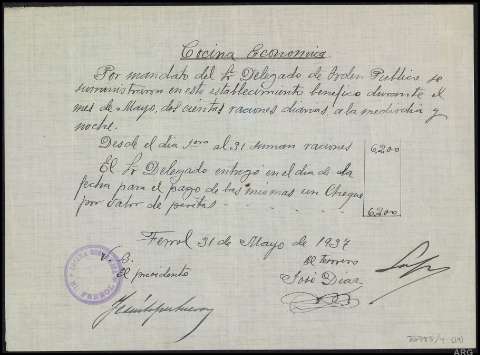 Cocina Economica
Por mandato del Sr Delegado de Orden Publico se
suministraron en este establecimiento benefico durante el
mes de Mayo, dos cientas raciones diarias a la mediodia y
noche.
Desde el dia 1ero al 31 suman raciones 6,200
El Sr Delegado entrego en el dia de la
fecha para el pago de las mismas un Cheque
por valor de pesetas 6,200
Ferrol 31 de Mayo de 1937
V. B.
El presidente
El Tesorero
José Diaz
COCINA ECONOMICA
EL FERROL
(19)
ARG